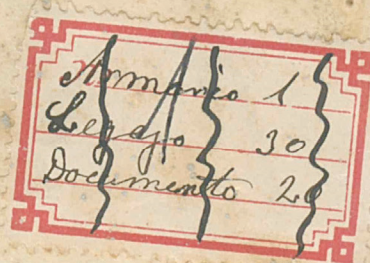 Armario 1
Legajo 30
Documento 20